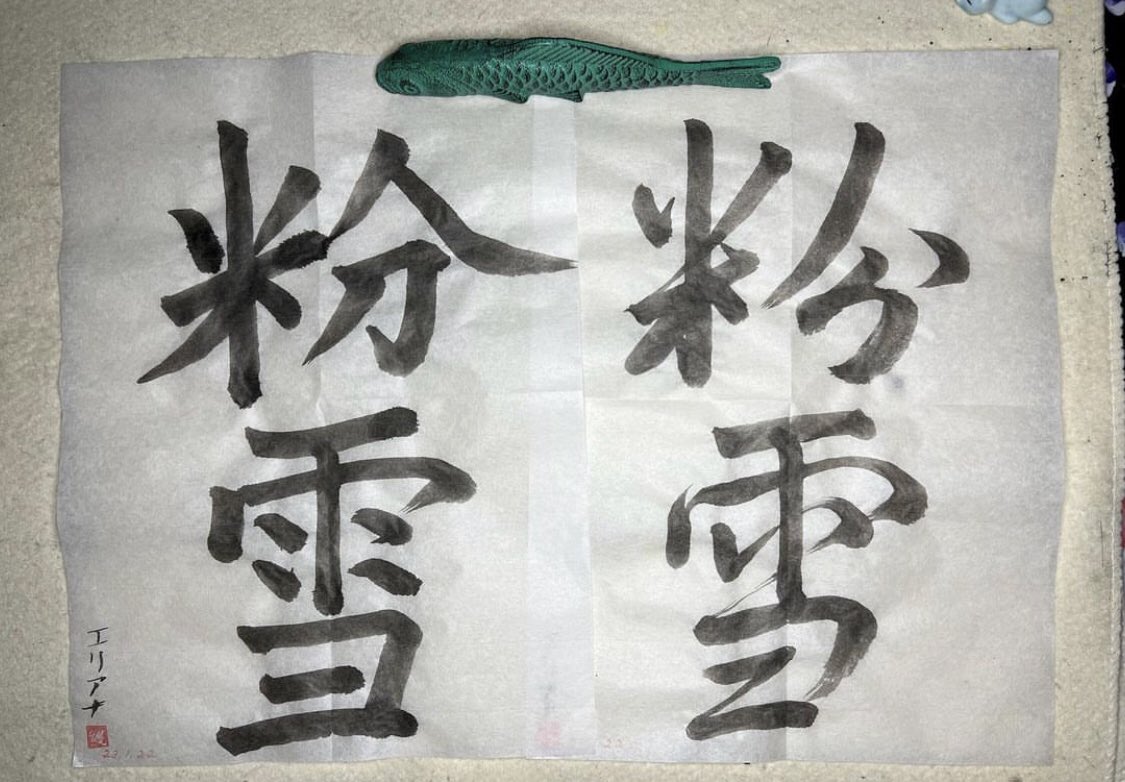 粉雪
粉雪
エリアナ
23.1.22